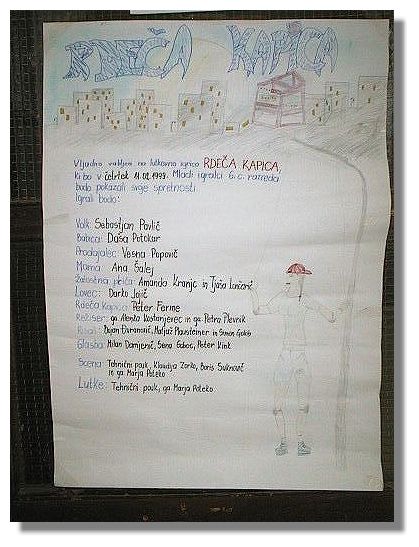 RDEČA KAPICA
Vljudno vabljeni na lutkovno igrico RDEČA KAPICA,
ki bo v četrtek 11.02.1999. Mladi igralci 6.c razreda
bodo pokazali svoje spretnosti.
Igrali bodo:
Volk: Sebastjan Pavlič
Babica: Daša Potokar
Prodajalec: Vesna Popovič
Mama: Ana Šalej
Žalostna priča: Amanda Kranjc in Tjaša Lončarič
Lovec: Darko Jojič
Rdeča Kapica: Peter Ferme
Režiser: ga. Alenka Kostanjevec in ga. Petra Plevnik
Risali: Bojan Matjaž in Simon Golob
Glasba: Milan Damjenič, Sena Peter Kink
Scena: Tehnični pouk, Klavdija Zorko, Boris
in ga. Marja Poteko
Lutke: Tehnični pouk, ga. Marja Poteko